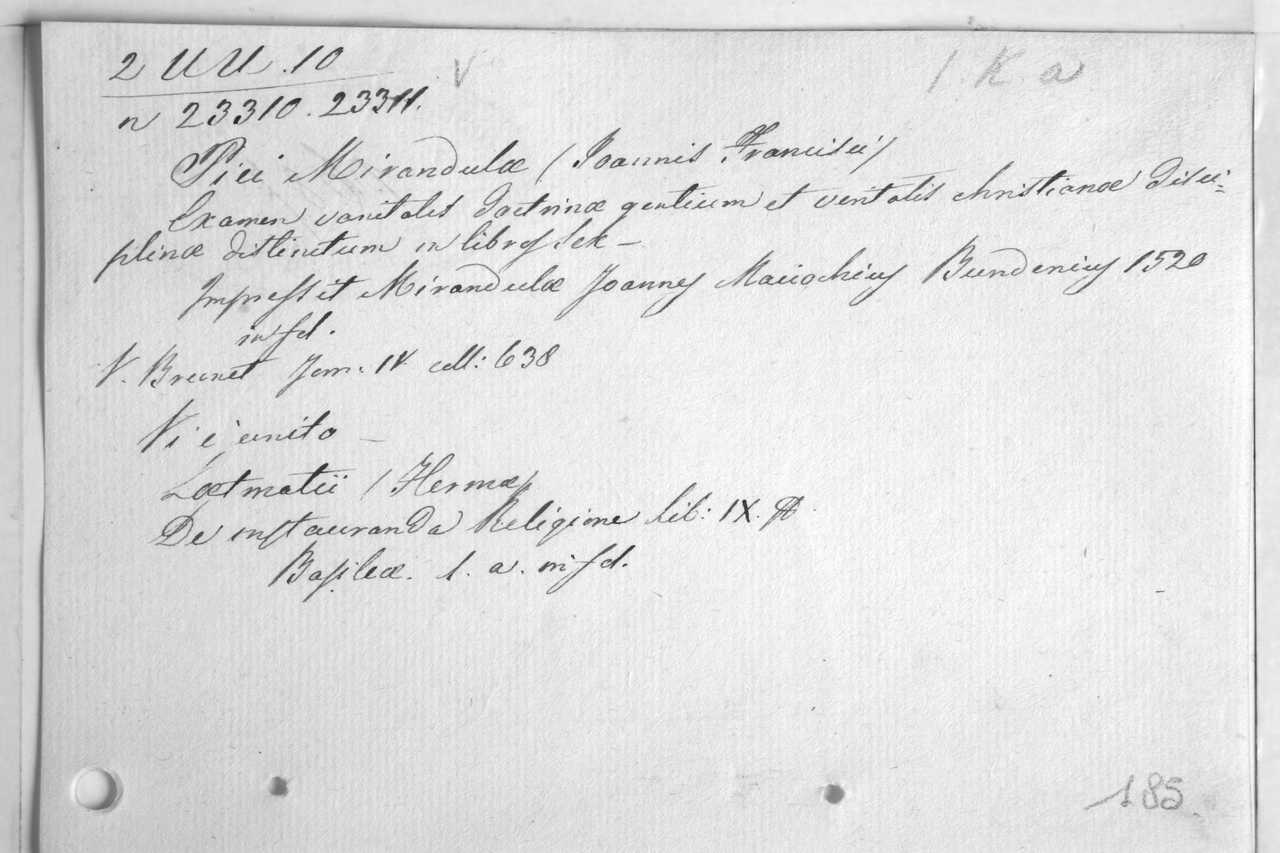 2 UU. 10
V
1. K. a
n 23310. 23311.
Pici Mirandulæ (Joannis Francisci)
Examen vanitatis doctrinæ gentium et veritatis christianæ disci=
plinæ distinctum in libros sex —
Impressit Mirandulæ Joannes Maciochius Bundenius 1520
in fol.
V. Brunet Tom. IV. coll: 638
Vi è unito —
Lætmatii (Hermæ)
De instauranda Religione lib: IX.
Basileæ. s. a. in fol.
185